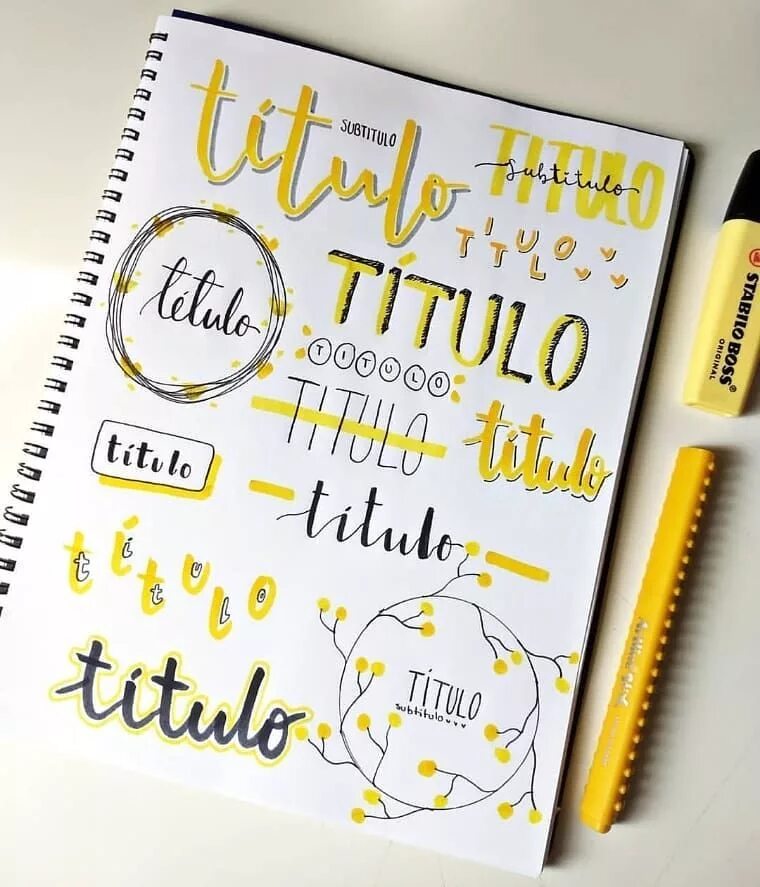 título
SUBTITULO
TITULO
subtitulo
TÍTULO
título
TÍTULO
TITULO
TITULO
título
título
título
título
título
TÍTULO
subtitulo
STABILO BOSS
ORIGINAL